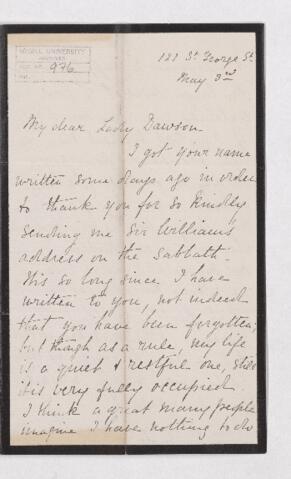 McGILL UNIVERSITY
ARCHIVES
ACC. NO. 976
REF.
121 St. George St.
May 3rd
My dear Lady Dawson
I got your name
written some days ago in order
to thank you for so kindly
sending me Sir William's
address on the Sabbath.
Tis so long since I have
written to you, not indeed
that you have been forgotten,
but though as a rule, my life
is a quiet & restful one, still
it is very fully occupied.
I think a great many people
imagine I have nothing to do